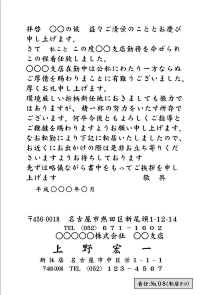 拝啓　〇〇の候　益々ご清栄のこととお慶び
申し上げます。
さて　私こと　この度〇〇支店勤務を命ぜられ
この程着任致しました。
〇〇支店在勤中は公私にわたり一方ならぬ
ご厚情を賜わりまことに有難うございました。
厚くお礼申し上げます。
環境厳しい折柄新任地におきましても微力で
はありますが、精一杯の努力をいたす所存で
ございます。何卒今後ともよろしくご指導と
ご鞭撻を賜わりますようお願い申し上げます。
なお転勤により下記に転居いたしましたので、
お近くにお出かけの際は是非お立ち寄りくだ
さいますようお待ちしております。
先ずは略儀ながら書中をもってご挨拶を申し
上げます　　　　　　　　　　敬　具
平成〇〇〇年〇月
〒456-0018　名古屋市熱田区新尾頭1-12-14
TEL (052) 671-1602
〇〇〇〇〇株式会社　〇〇支店
上野宏一
新住居　名古屋市中区栄1-1-1
〒468-0008　TEL (052) 123-4567
着任:No.08(転居タテ)